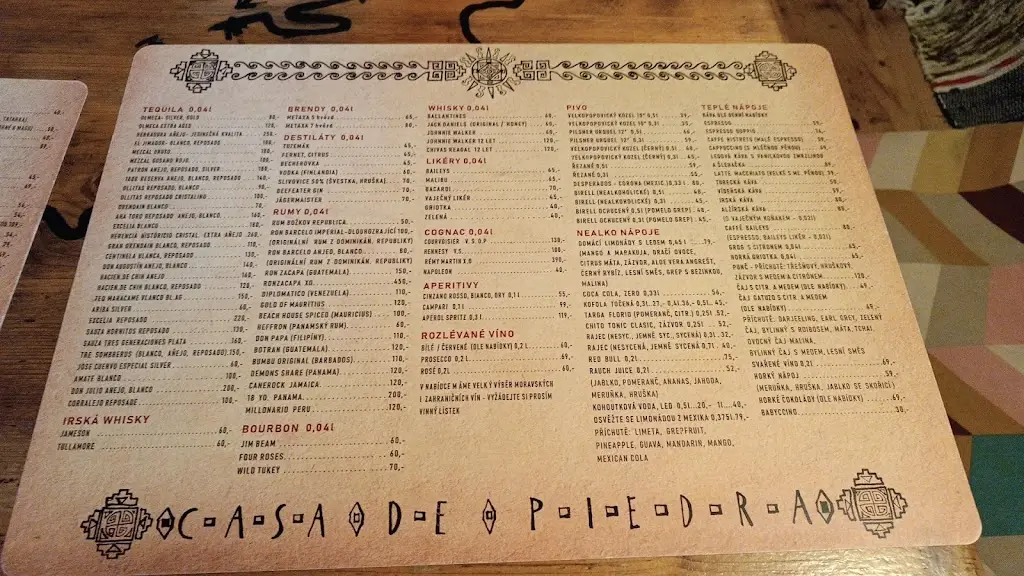 TEQUILA 0,04l
OLMECA- SILVER, GOLD 80,-
OLMECA EXTRA AGED 120,-
HERRADURA AÑEJO- JEDINEČNÁ KVALITA 250,-
EL JIMADOR- BLANCO, REPOSADO 100,-
MEZCAL
MEZCAL GUSANO ROJO 100,-
PATRON AÑEJO, REPOSADO, SILVER 180,-
1800 RESERVA AÑEJO, BLANCO, REPOSADO 140,-
OLLITAS REPOSADO, BLANCO 90,-
OLLITAS REPOSADO CRISTALINO 100,-
ORENDAIN BLANCO 70,-
AHA TORO REPOSADO AÑEJO, BLANCO 160,-
EXCELIA BLANCO 180,-
HERENCIA HISTÓRICO CRISTAL EXTRA AÑEJO
GRAN ORENDAIN BLANCO, REPOSADO 110,-
CENTINELA BLANCO, REPOSADO 130,-
DON AGUSTÍN AÑEJO, BLANCO 140,-
HACIEN.DE CHIN AÑEJO 140,-
HACIEN.DE CHIN BLANCO, REPOSADO 120,-
TEQ MARACAME VLANCO BLAG 150,-
ARIBA SILVER 60,-
EXCELIA REPOSADO 220,-
SAUZA HORNITOS REPOSADO 120,-
SAUZA TRES GENERACIONES PLATA 160,-
TRE SOMBREROS (BLANCO, AÑEJO, REPOSADO) 150,-
JOSE CUERVO ESPECIAL SILVER 60,-
AMATE BLANCO 100,-
DON JULIO AÑEJO, BLANCO 200,-
CORRALEJO REPOSADO 100,-
IRSKÁ WHISKY
JAMESON 60,-
TULLAMORE 60,-
BRENDY 0,04l
METAXA 5 hvězd 65,-
METAXA 7 hvězd 80,-
DESTILÁTY 0,04l
TUZEMÁK 45,-
FERNET, CITRUS 45,-
BECHEROVKA 45,-
VODKA (FINLANDIA) 60,-
SLIVOVICE 50% (ŠVESTKA, HRUŠKA) 70,-
BEEFEATER GIN 70,-
JÄGERMAISTER 70,-
RUMY 0,04l
RUM BOŽKOV REPUBLICA 50,-
RON BARCELO IMPERIAL-DLOUHOZRAJÍCÍ 100,-
(ORIGINÁLNÍ RUM Z DOMINIKÁN. REPUBLIKY)
RON BARCELO ANEJO, BLANCO 80,-
(ORIGINÁLNÍ RUM Z DOMINIKÁN. REPUBLIKY)
RON ZACAPA (GUATEMALA) 150,-
RONZACAPA XO 450,-
DIPLOMATICO (VENEZUELA) 110,-
GOLD OF MAURITIUS 120,-
BEACH HOUSE SPICED (MAURICIUS) 100,-
HEFFRON (PANAMSKÝ RUM) 60,-
DON PAPA (FILIPÍNY) 110,-
BOTRAN (GUATEMALA) 120,-
BUMBU ORIGINAL (BARBADOS) 110,-
DEMONS SHARE (PANAMA) 120,-
CANEROCK JAMAICA 120,-
18 YO. PANAMA 200,-
MILLONARIO PERU 120,-
BOURBON 0,04l
JIM BEAM 60,-
FOUR ROSES 60,-
WILD TUKEY 70,-
WHISKY 0,04l
BALLANTINES 60,-
JACK DANIELS (ORIGINAL / HONEY) 80,-
JOHNNIE WALKER 60,-
JOHNNIE WALKER 12 LET 120,-
CHIVAS REAGAL 12 LET 120,-
LIKÉRY 0,04l
BAILEYS 65,-
MALIBU 65,-
BACARDI 70,-
VAJEČNÝ LIKÉR 45,-
GRIOTKA 40,-
ZELENÁ 40,-
COGNAC 0,04l
COURVOISIER V.S.O.P 130,-
HENNESY V.S. 100,-
RÉMY MARTIN X.O 390,-
NAPOLEON 40,-
APERITIVY
CINZANO ROSSO, BIANCO, DRY 0,1 l 55,-
CAMPARI 0,1 l 90,-
APEROL SPRITZ 0,3 l 119,-
ROZLÉVANÉ VÍNO
BÍLÉ / ČERVENÉ (DLE NABÍDKY) 0,2 l 60,-
PROSECCO 0,2 l 69,-
ROSÉ 0,2l 60,-
V NABÍDCE MÁME VELKÝ VÝBĚR MORAVSKÝCH
I ZAHRANIČNÍCH VÍN - VYŽÁDEJTE SI PROSÍM
VINNÝ LÍSTEK
PIVO
VELKOPOPOVICKÝ KOZEL 10° 0,5l
VELKOPOPOVICKÝ KOZEL 10° 0,3l
PILSNER URQUEL 12° 0,5l
PILSNER URQUEL 12° 0,3l
VELKOPOPOVICKÝ KOZEL (ČERNÝ) 0,5l
VELKOPOPOVICKÝ KOZEL (ČERNÝ) 0,3l
ŘEZANÉ 0,5l
ŘEZANÉ 0,3l
DESPERADOS - CORONA (MEXIC.) 0,33 l 80,-
BIRELL (NEALKOHOLICKÉ) 0,5l
BIRELL (NEALKOHOLICKÉ) 0,3l
BIRELL OCHUCENÝ 0,5l (POMELO GREP)
BIRELL OCHUCENÝ 0,3l (POMELO GREP)
NEALKO NÁPOJE
DOMÁCÍ LIMONÁDY S LEDEM 0,45 l 79,-
(MANGO A MARAKUJA, DRAČÍ OVOCE,
CITRUS MÁTA, ZÁZVOR, ALOE VERA ANGREŠT,
ČERNÝ RYBÍZ, LESNÍ SMĚS, GREP S BEZINKOU,
MALINA)
COCA COLA, ZERO 0,33l 56,-
KOFOLA TOČENÁ 0,3l.27,- 0,4l.36,- 0,5l 45,-
TARGA FLORIO (POMERANČ, CITR.) 0,25l 52,-
CHITO TONIC CLASIC, ZÁZVOR 0,25l 52,-
RAJEC (NESYC., JEMNĚ SYC., SYCENÁ) 0,3l 32,-
RAJEC (NESYCENÁ, JEMNĚ SYCENÁ 0,7l 40,-
RED BULL 0,2l 75,-
RAUCH JUICE 0,2l 52,-
(JABLKO, POMERANČ, ANANAS, JAHODA,
MERUŇKA, HRUŠKA)
KOHOUTKOVÁ VODA, LED 0,5l..20,- 1l...40,-
OSVĚŽTE SE LIMONÁDOU Z MEXIKA 0,375l.79,-
PŘÍCHUTĚ: LIMETA, GREPFRUIT,
PINEAPPLE, GUAVA, MANDARIN, MANGO,
MEXICAN COLA
TEPLÉ NÁPOJE
KÁVA DLE DENNÍ NABÍDKY
ESPRESSO
ESPRESSO DOPPIO
CAFFE RISTRETO (MALÉ ESPRESSO)
CAPPUCCINO (S MLÉČNOU PĚNOU)
LEDOVÁ KÁVA S VANILKOVOU ZMRZLINOU
A ŠLEHAČKA
LATTE MACCHIATO (VELKÉ S ML. PĚNOU)
TURECKÁ KÁVA
VÍDEŇSKÁ KÁVA
IRSKÁ KÁVA
ALŽÍRSKÁ KÁVA
(S VAJEČNÝM KOŇAKEM - 0,02l)
CAFFÉ BAILEYS 80,-
(ESPRESSO, BAILEYS LIKÉR - 0,02l)
GROG S CITRONEM 0,04l
HORKÁ GRIOTKA 0,04l
PUNČ - PŘÍCHUTĚ: TŘEŠŇOVÝ, HRUŠKOVÝ,
ZÁZVOR S MEDEM A CITRÓNEM
ČAJ S CITR. A MEDEM (DLE NABÍDKY) 49,-
ČAJ GATUZO S CITR. A MEDEM
(DLE NABÍDKY) 49,-
PŘÍCHUTĚ: DARJEELING, EARL GREY, ZELENÝ
ČAJ, BYLINNÝ S ROIBOSEM, MÁTA, TCHAI,
OVOCNÝ ČAJ MALINA,
BYLINNÝ ČAJ S MEDEM, LESNÍ SMĚS
SVAŘENÉ VÍNO 0,2l 69,-
HORKÝ NÁPOJ 59,-
(MERUŇKA, HRUŠKA, JABLKO SE SKOŘICÍ)
HORKÉ ČOKOLÁDY (DLE NABÍDKY) 69,-
BABYCCINO 30,-
CASA DE PIEDRA